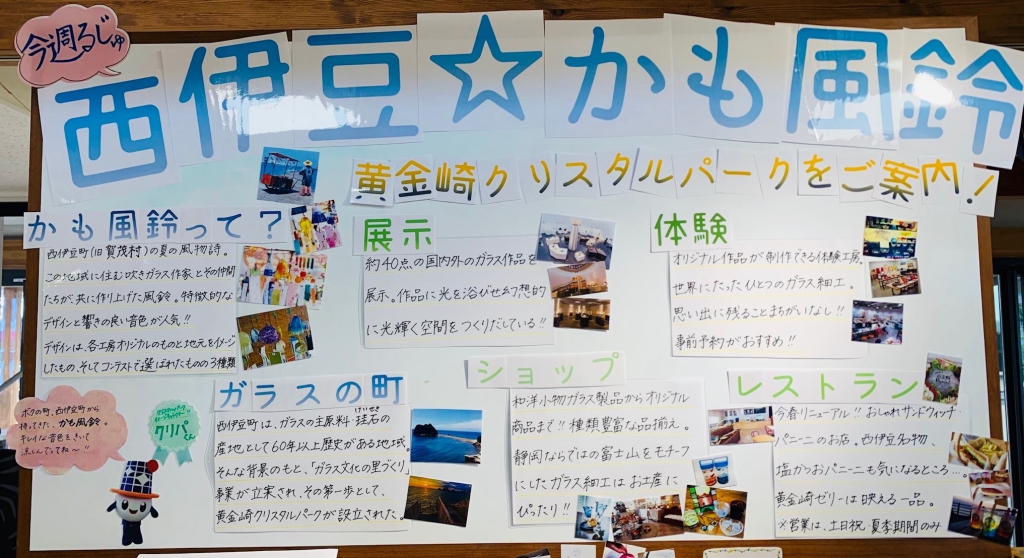 今週るじゅ
西伊豆☆かも風鈴
黄金崎クリスタルパークをご案内!
かも風鈴って?
西伊豆町(旧賀茂村)の夏の風物詩。
この地域に住む吹きガラス作家とその仲間
たちが、共に作り上げた風鈴。特徴的な
デザインと響きの良い音色が人気!!
デザインは、各工房オリジナルのものと地元をイメージ
したもの、そしてコンテストで選ばれたものの3種類
展示
約40点の国内外のガラス作品を
展示。作品に光を浴びせ幻想的
に光輝く空間をつくりだしている!!
体験
オリジナル作品が制作できる体験工房。
世界にたったひとつのガラス細工。
思い出に残ることまちがいなし!!
事前予約がおすすめ!!
ボクの町、西伊豆町から
持ってきた、かも風鈴。
キレイな音色をきいて
涼んでってね〜!!
クリパくん
ガラスの町
西伊豆町は、ガラスの主原料・珪石の
けいせき
産地として60年以上歴史がある地域。
そんな背景のもと、「ガラス文化の里づくり」
事業が立案され、その第一歩として、
黄金崎クリスタルパークが設立された。
ショップ
和洋小物ガラス製品からオリジナル
商品まで!!種類豊富な品揃え。
静岡ならではの富士山をモチーフ
にしたガラス細工はお土産に
ぴったり!!
レストラン
今春リニューアル!!おしゃれサンドウィッチ・
パニーニのお店。西伊豆名物、
塩がつおパニーニも気になるところ…。
黄金崎ゼリーは映える一品。
※営業は、土日祝・夏季期間のみ